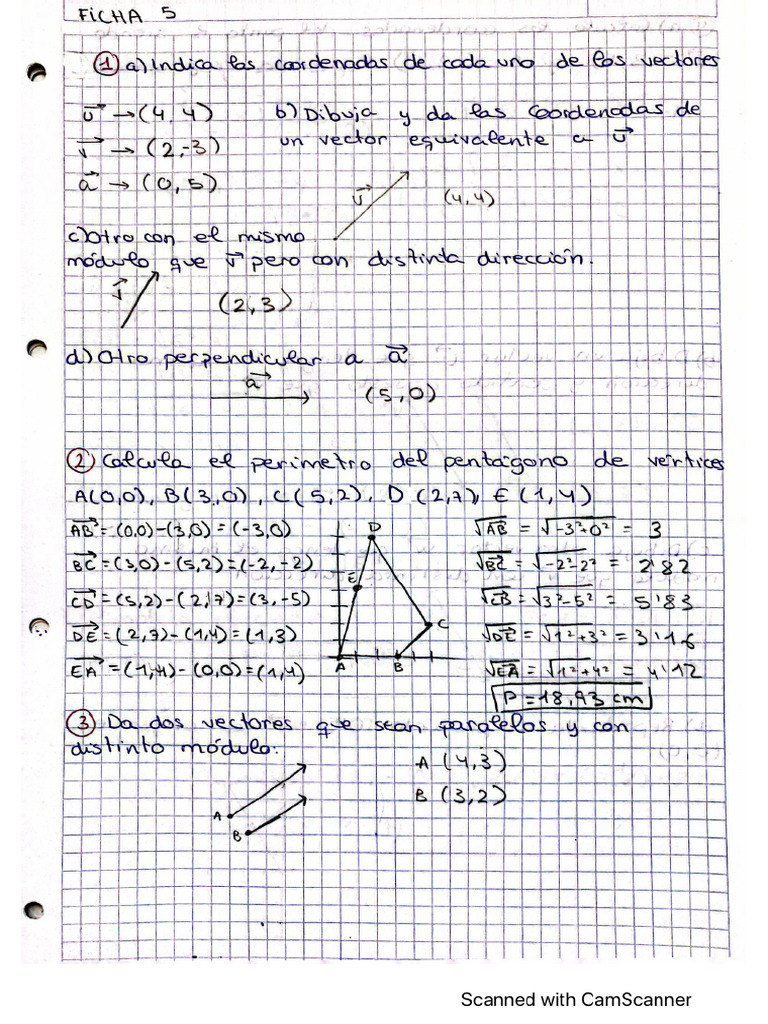 FICHA 5
① a) Indica las coordenadas de cada uno de los vectores
u⃗ → (4,4)
v⃗ → (2,-3)
a⃗ → (0,5)
b) Dibuja y da las coordenadas de
un vector equivalente a u⃗
u⃗
(4,4)
c) Otro con el mismo
módulo que v⃗ pero con distinta dirección.
v⃗
(2,3)
d) Otro perpendicular a a⃗
a⃗
(5,0)
② Calcula el perimetro del pentágono de vértices
A(0,0), B(3,0), C(5,2), D(2,7), E(1,4)
AB⃗ = (0,0)-(3,0)=(-3,0)
BC⃗ = (3,0)-(5,2)=(-2,-2)
CD⃗ = (5,2)-(2,7)=(3,-5)
DE⃗ = (2,7)-(1,4)=(1,3)
EA⃗ = (1,4)-(0,0)=(1,4)
D
E
C
A
B
√AB⃗ = √-3²+0² = 3
√BC⃗ = √-2²-2² = 2'82
√CB⃗ = √3²-5² = 5'83
√DE⃗ = √1²+3² = 3'16
√EA⃗ = √1²+4² = 4'12
P = 18,93 cm
③ Da dos vectores que sean paralelos y con
distinto módulo:
A
B
A (4,3)
B (3,2)
Scanned with CamScanner